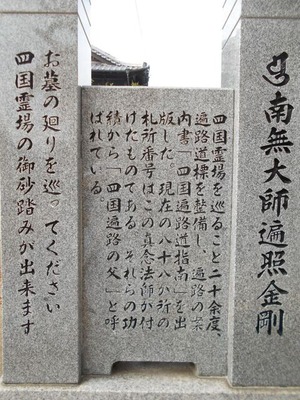 南無大師遍照金剛
四国霊場を巡ること二十余度、
遍路道標を整備し、遍路の案
内書「四国遍路道指南」を出
版した。現在の八十八か所の
札所番号はこの真念法師が付
けたものである。それらの功
績から「四国遍路の父」と呼
ばれている
お墓の廻りを巡ってください
四国霊場の御砂踏みが出来ます